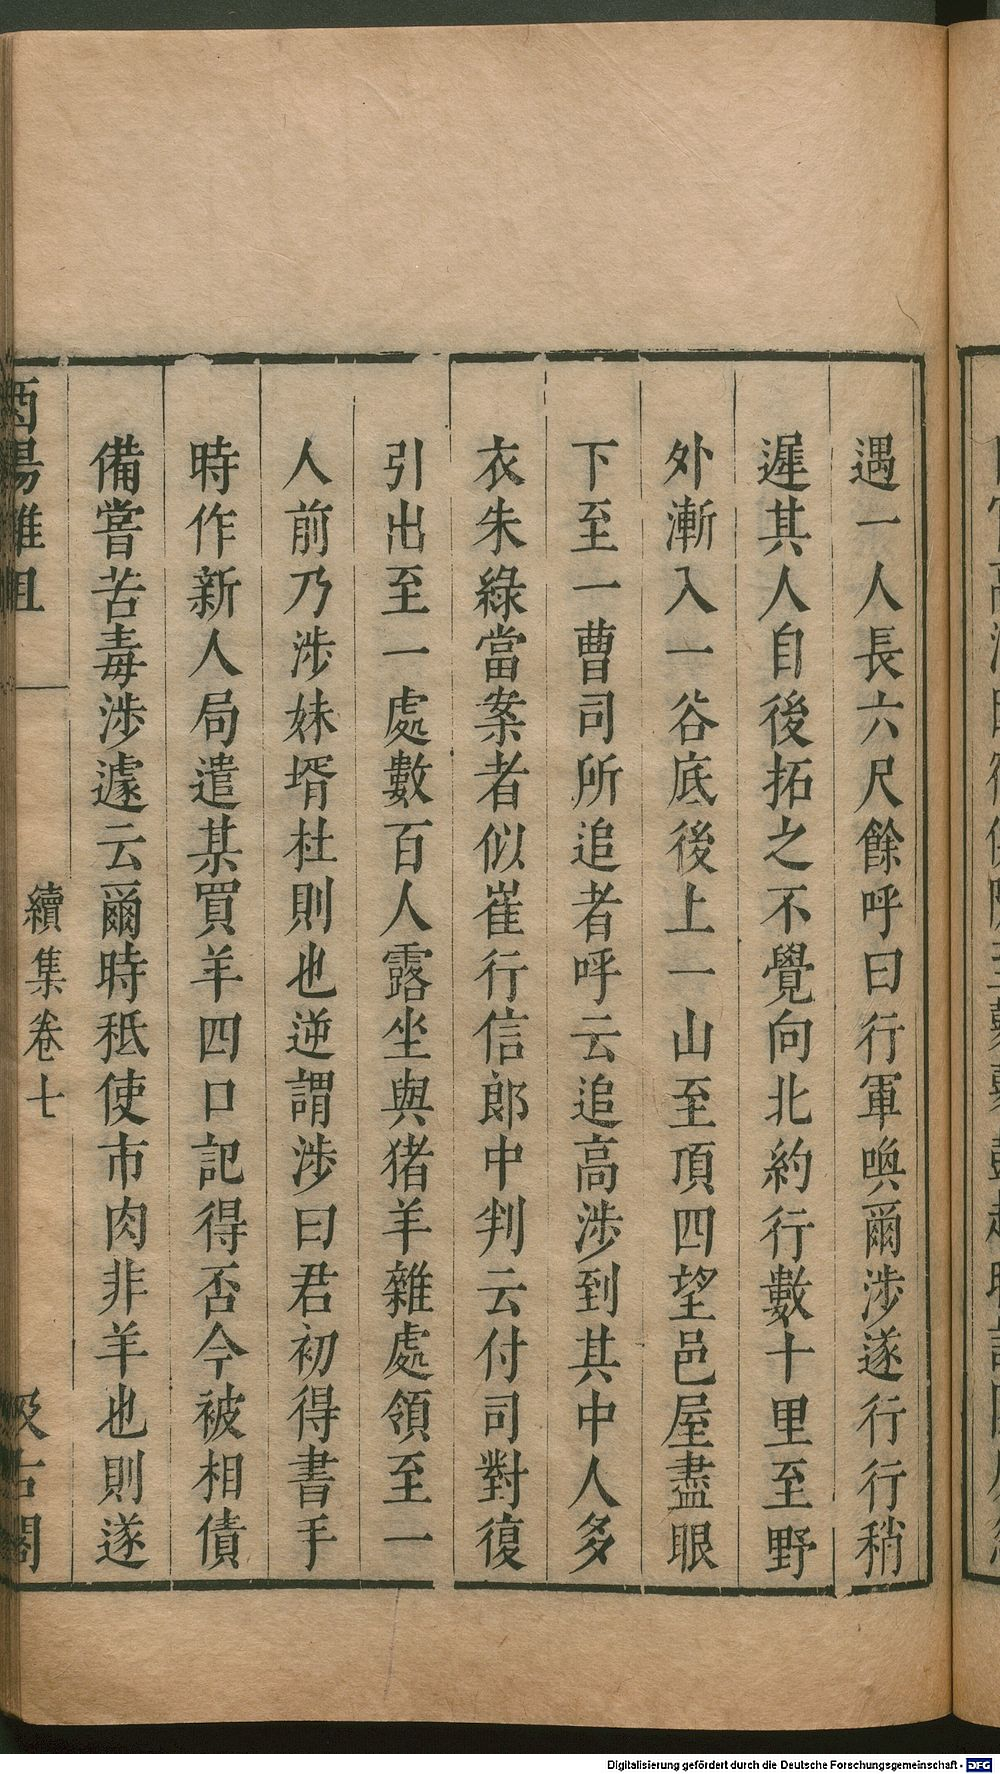 遇一人長六尺餘呼曰行軍喚爾涉遂行行稍
遲其人自後拓之不覺向北約行數十里至野
外漸入一谷底後上一山至頂四望邑屋盡眼
下至一曹司所追者呼云追高涉到其中人多
衣朱綠當案者似崔行信郎中判云付司對復
引出至一處數百人露坐與猪羊雜處領至一
人前乃涉妹壻杜則也逆謂涉曰君初得書手
時作新人局遣某買羊四口記得否今被相債
備嘗苦毒涉遽云爾時秪使市肉非羊也則遂
酉陽雜俎
續集卷七
汲古閣
Digitalisierung gefördert durch die Deutsche Forschungsgemeinschaft - DFG